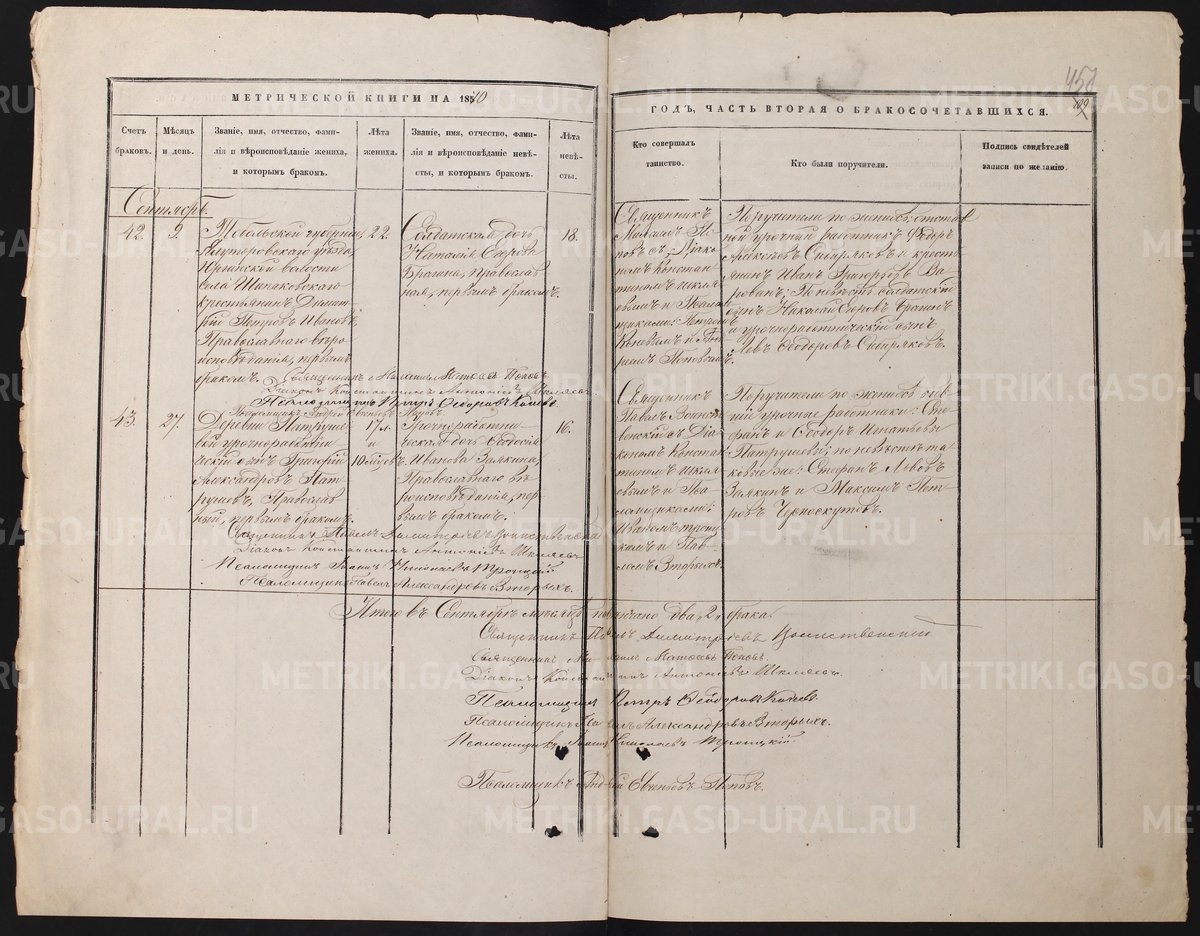 457
109
МЕТРИЧЕСКОЙ КНИГИ НА 1870
ГОДЪ, ЧАСТЬ ВТОРАЯ О БРАКОСОЧЕТАВШИХСЯ.
Счетъ браковъ.
Мѣсяцъ и день.
Званіе, имя, отчество, фами-
лія и вѣроисповѣданіе жениха,
и которымъ бракомъ.
Лѣта
жениха.
Званіе, имя, отчество, фами-
лія и вѣроисповѣданіе невѣ-
сты, и которымъ бракомъ.
Лѣта
невѣ-
сты.
Кто совершалъ
таинство.
Кто были поручители.
Подпись свидѣтелей
записи по желанію.
Сентябрь.
42.
9.
Тобольской губерніи,
Ялуторовскаго уѣзда,
волости
села Шипаковскаго
крестьянинъ Димит-
рій Петровъ Ивановъ,
Православнаго вѣро-
исповѣданія, первымъ
бракомъ.
22.
Солдатская дочь
Наталія Егорова
Брагина, Православ-
ная, первымъ бракомъ.
18.
Священникъ
Михаилъ По-
повъ съ Діако-
номъ Констан-
тиномъ Шкля-
евымъ и Псалом-
щиками: Петромъ
и Анд-
реемъ Поповымъ.
Поручители по женихѣ: отстав-
ной урочный работникъ Ѳедоръ
Алексѣевъ Сибиряковъ и кресть-
янинъ Иванъ Григорьевъ
по невѣстѣ: солдатскій
сынъ Николай Егоровъ Брагинъ
и урочноработническій сынъ
Левъ Ѳеодоровъ Сибиряковъ.
Священникъ Михаилъ Матѳеевъ Поповъ
Діаконъ Константинъ Антоніевъ Шкляевъ
Псаломщикъ Петръ Ѳедоровъ
Псаломщикъ Андрей Евгеніевъ Поповъ.
43.
27.
Деревни Патруше-
вой урочноработни-
ческій сынъ Григорій
Александровъ Пат-
рушевъ, Православ-
ный, первымъ бракомъ.
17 л.
и
10 мѣсяц.
Урочноработни-
ческая дочь Ѳеодосія
Иванова Зыкина,
Православнаго вѣ-
роисповѣданія, пер-
вымъ бракомъ.
16.
Священникъ
Павелъ Воинст-
венскій съ Діа-
кономъ Констан-
тиномъ Шкля-
евымъ и Пса-
ломщиками:
Иваномъ Троиц-
кимъ и Пав-
ломъ Вторыхъ.
Поручители по женихѣ: быв-
шіе урочные работники: Сте-
фанъ и Ѳеодоръ Игнатьевы
Патрушевы; по невѣстѣ та-
ковые же: Стефанъ Львовъ
Зыкинъ и Максимъ Пет-
ровъ Черноскутовъ.
Священникъ Павелъ Димитріевъ Воинственскій
Діаконъ Константинъ Антоніевъ Шкляевъ
Псаломщикъ Иванъ Николаевъ Троицкій
Псаломщикъ Павелъ Александровъ Вторыхъ.
Итого въ Сентябрѣ мѣсяцѣ повѣнчано два „2“ брака.
Священникъ Павелъ Димитріевъ Воинственскій
Священникъ Михаилъ Матѳеевъ Поповъ.
Діаконъ Константинъ Антоніевъ Шкляевъ.
Псаломщикъ Петръ Ѳеодоровъ
Псаломщикъ Павелъ Александровъ Вторыхъ.
Псаломщикъ Иванъ Николаевъ Троицкій.
Псаломщикъ Андрей Евгеніевъ Поповъ.
METRIKI.GASO-URAL.RU